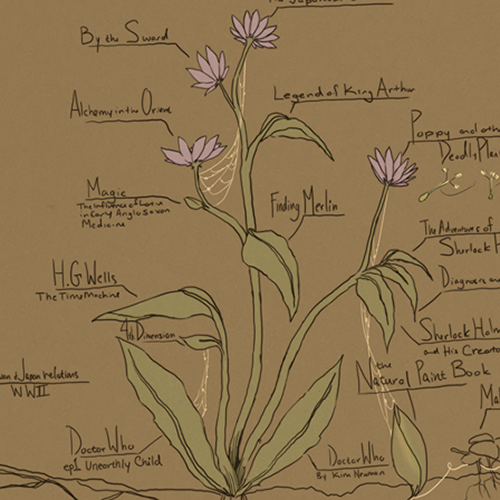 By the Sword
Alchemy in the Orient
Legend of King Arthur
Poppy and othe
Deadly Plan
Magic
The Influence of
in Early Anglo Saxon
Medicine
Finding Merlin
The Adventures of
Sherlock H
H.G Wells
The Time Machine
Diagnoses and
4th Dimension
Sherlock Holm
and His Creato
and Japan relations
WWII
the
Natural Paint Book
Ma
Doctor Who
ep1 Unearthly Child
Doctor Who
By Kim Newman